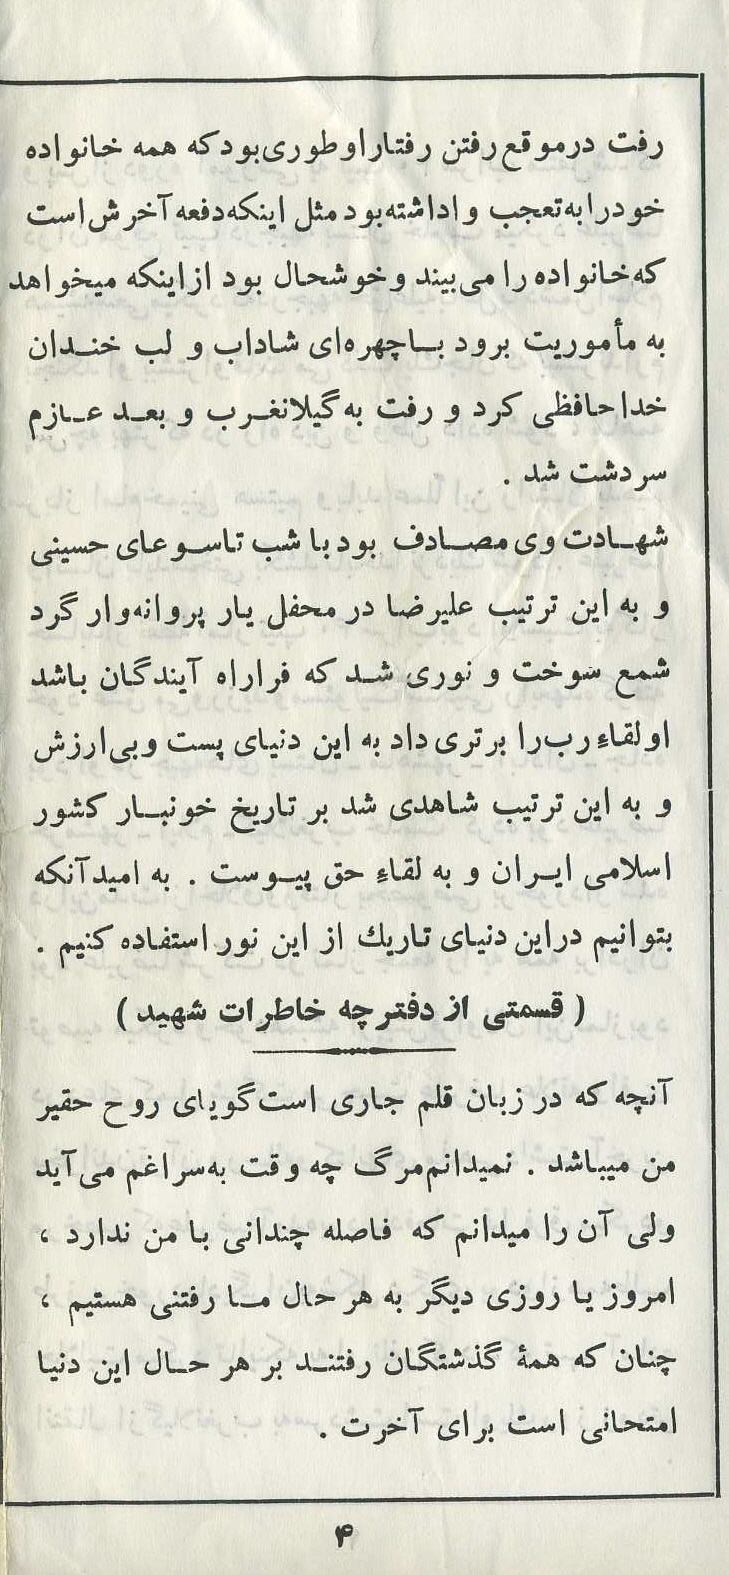 رفت درموقع رفتن رفتار او طوری بود که همه خانواده
خودرا به تعجب واداشته بود مثل اینکه دفعه آخرش است
که خانواده را می‌بیند و خوشحال بود ازاینکه میخواهد
به مأموریت برود بـاچهره‌ای شاداب و لب خنـدان
خداحافظی کرد و رفت به گیلانغـرب و بعـد عـازم
سردشت شد .
شهـادت وی مصـادف بود با شب تاسـوعای حسینی
و به این ترتیب علیرضا در محفل یار پروانه‌وار گرد
شمع سوخت و نوری شـد که فراراه آیندگان باشد
او لقاءِ رب را برتری داد به این دنیای پست و بی‌ارزش
و به این ترتیب شاهدی شد بر تاریخ خونبـار کشور
اسلامی ایـران و به لقاءِ حق پیـوست . به امید آنکه
بتوانیم دراین دنیای تاریك از این نور استفاده کنیم .
( قسمتی از دفترچه خاطرات شهید )
آنچه که در زبان قلم جاری است گویای روح حقیر
من میباشد . نمیدانم مرگ چه وقت به‌سراغم می‌آید
ولی آن را میدانم که فاصله چندانی با من ندارد ،
امروز یا روزی دیگر به هر حال مـا رفتنی هستیم ،
چنان که همهٔ گذشتگان رفتنـد بر هر حـال این دنیا
امتحانی است برای آخرت .
۴